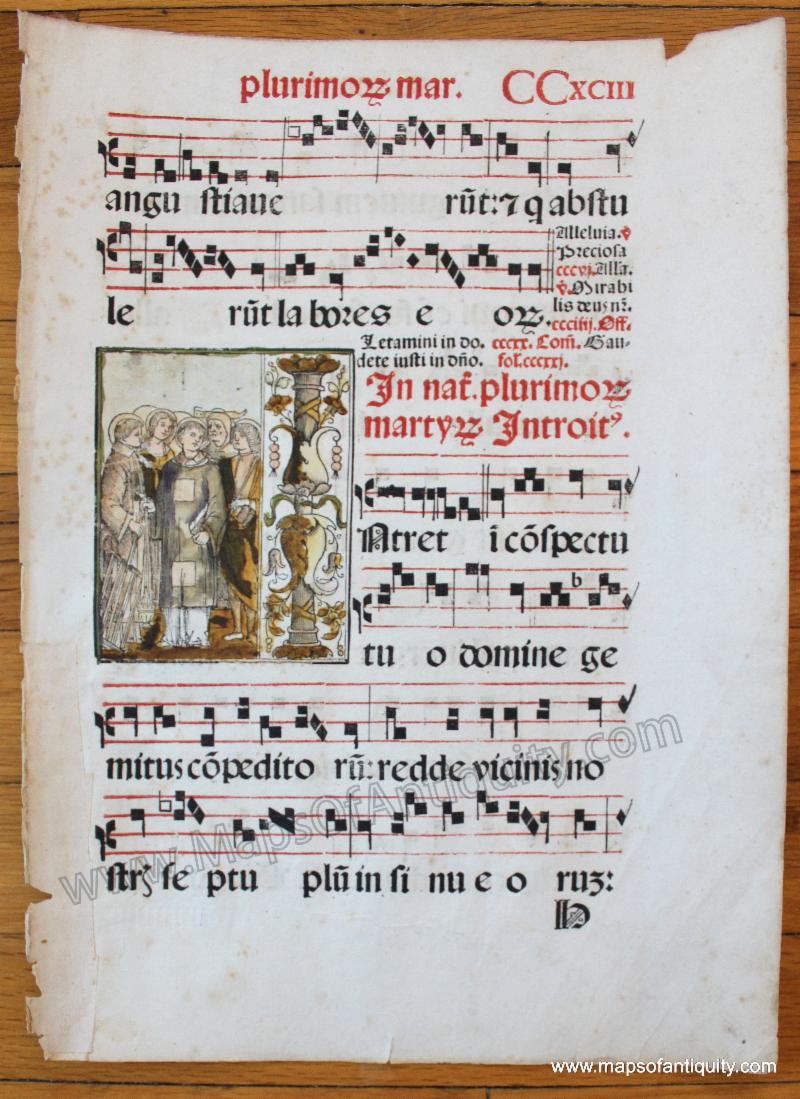 plurimoꝝ mar. CCXCIII
angu stiaue rūt: ⁊ q abstu
le rūt la bores e oꝝ.
Alleluia. ℣
Preciosa
cccvj. Alla.
℣. Mirabi
lis deus nr̄.
ccciiij. Off.
Letamini in do. cccxx. Com̄. Gau-
dete iusti in dn̄o. fol. cccxxj.
In nat̄. plurimoꝝ
martyꝝ Introitꝰ.
Ntret ī cōspectu
tu o domine ge
mitus cōpedito rū: redde vicinis no
strꝭ se ptu plū in si nu e o ruꝫ:
h
www.MapsOfAntiquity.com
www.mapsofantiquity.com